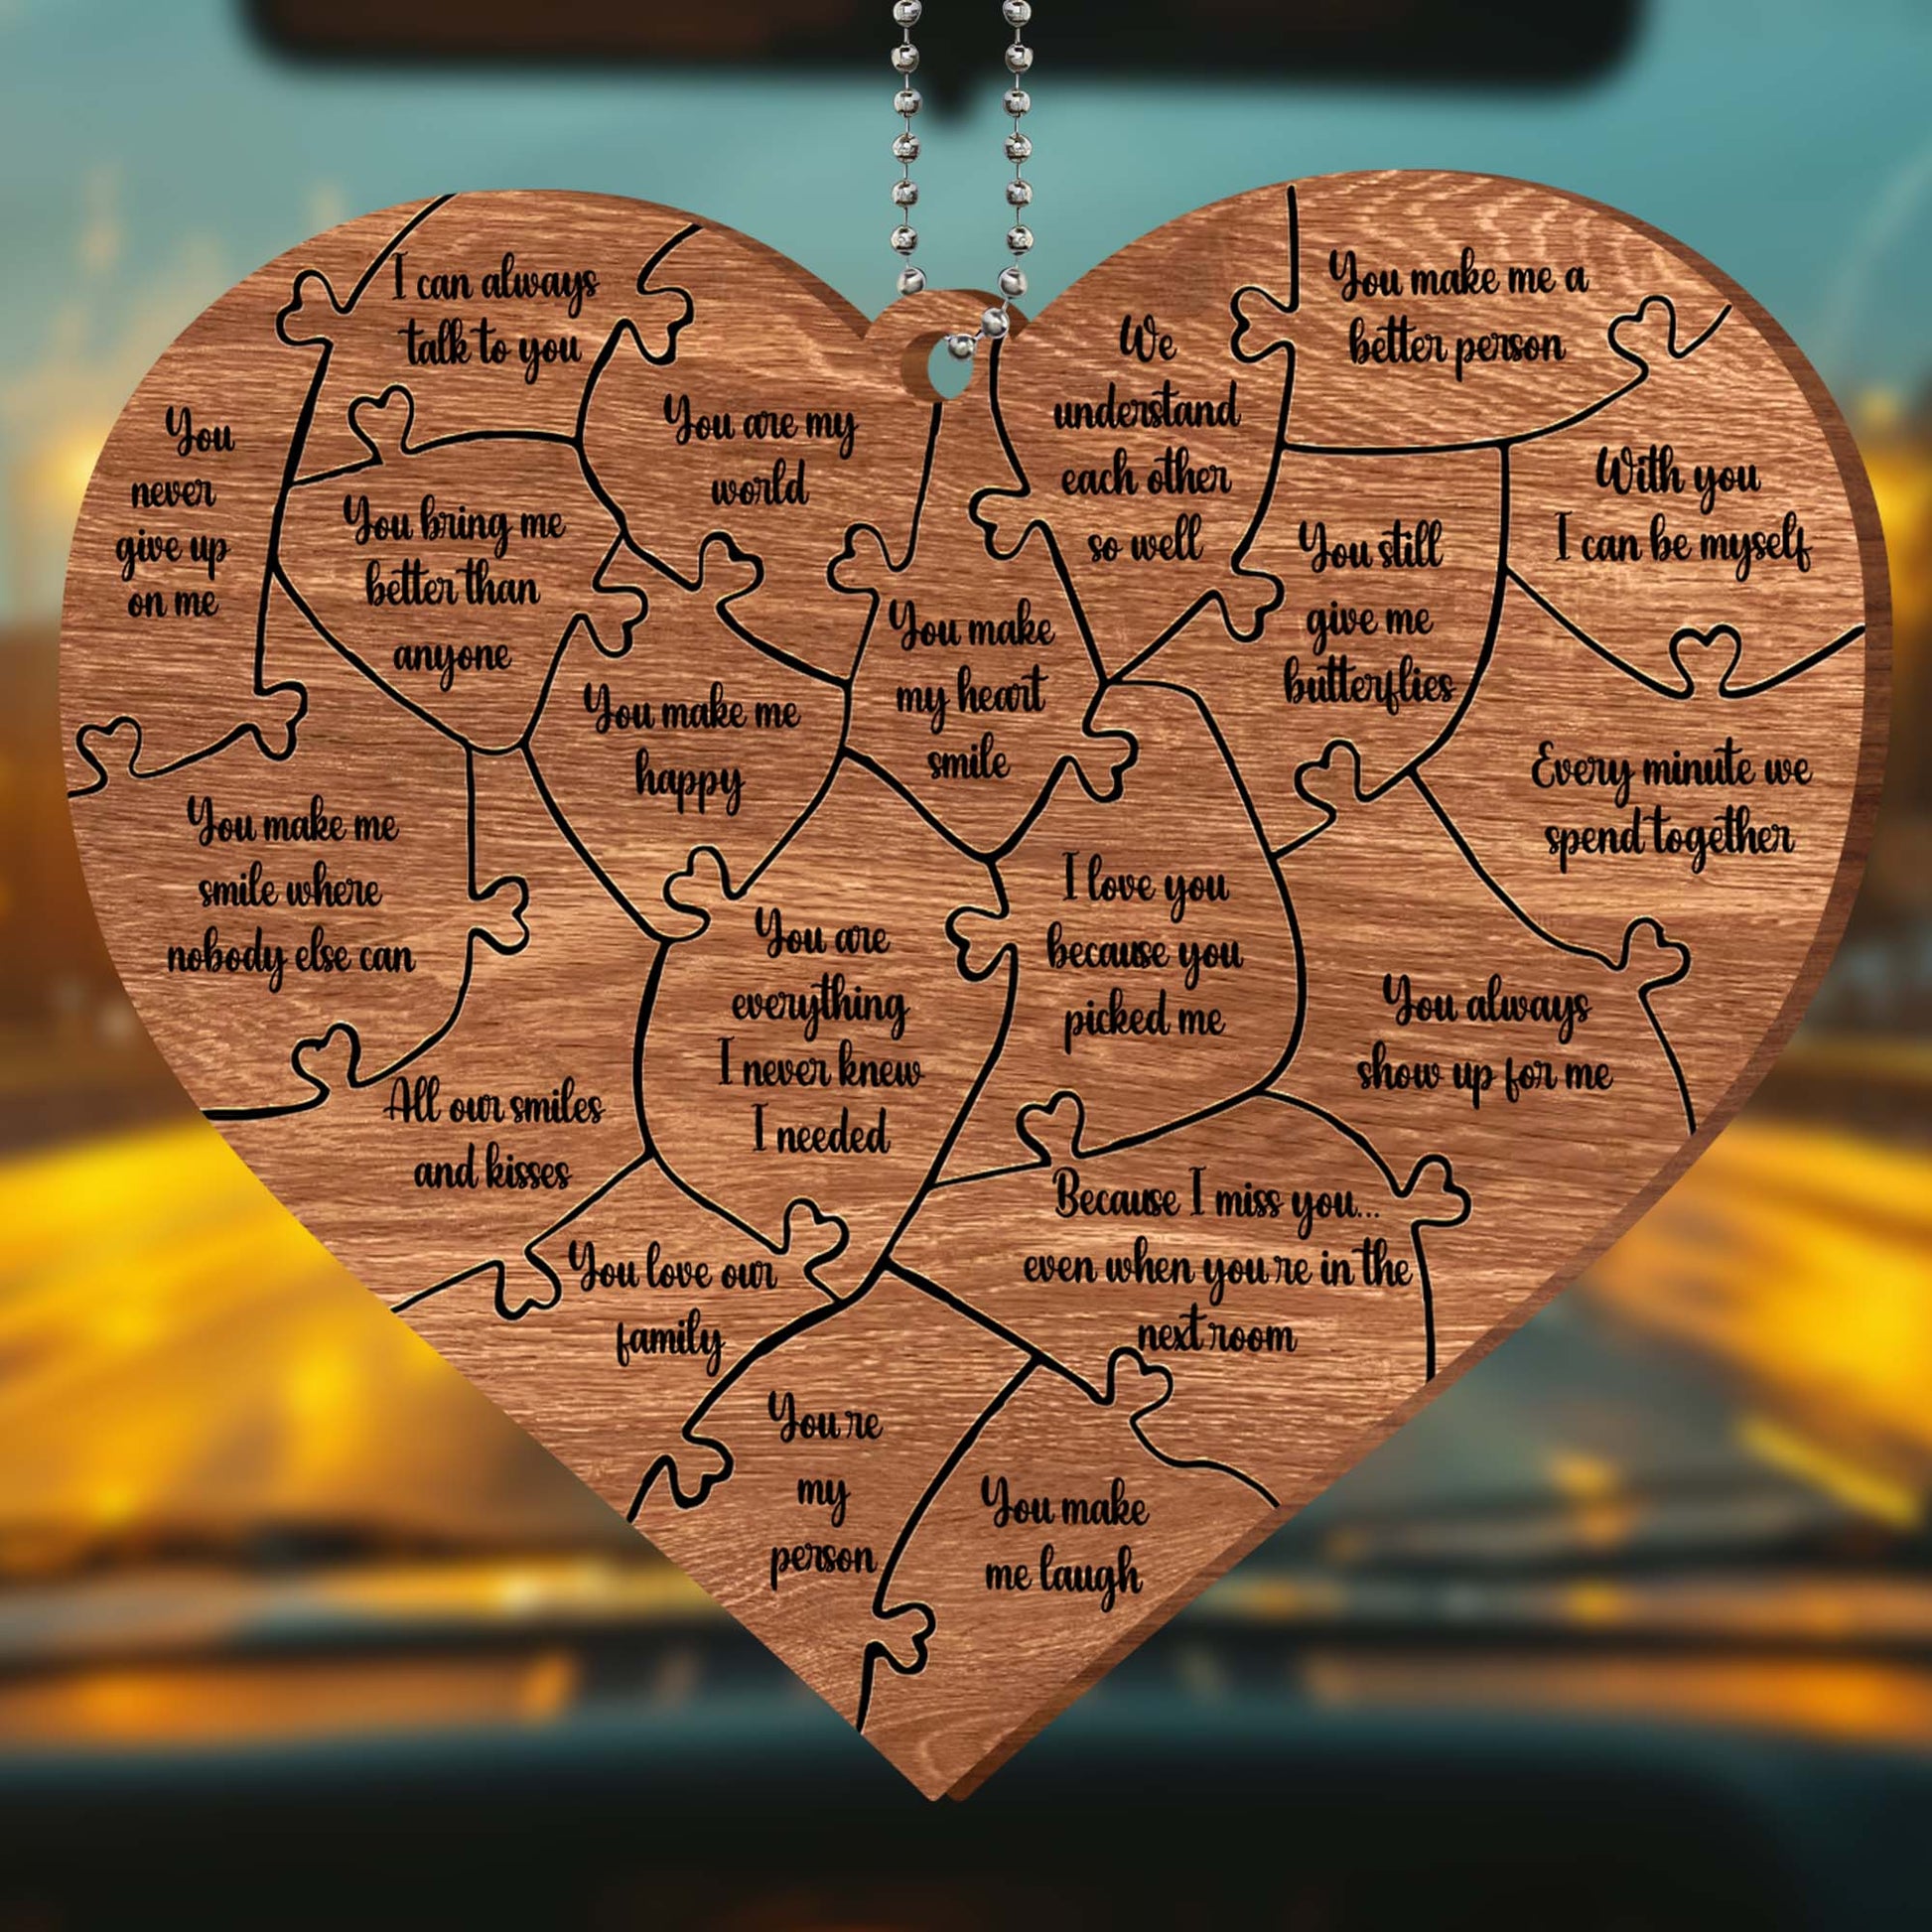 I can always
talk to you
You
never
give up
on me
You are my
world
We
understand
each other
so well
You make me a
better person
With you
I can be myself
You bring me
better than
anyone
You still
give me
butterflies
You make
my heart
smile
You make me
happy
Every minute we
spend together
You make me
smile where
nobody else can
You are
everything
I never knew
I needed
I love you
because you
picked me
You always
show up for me
All our smiles
and kisses
Because I miss you...
even when you're in the
next room
You love our
family
You're
my
person
You make
me laugh